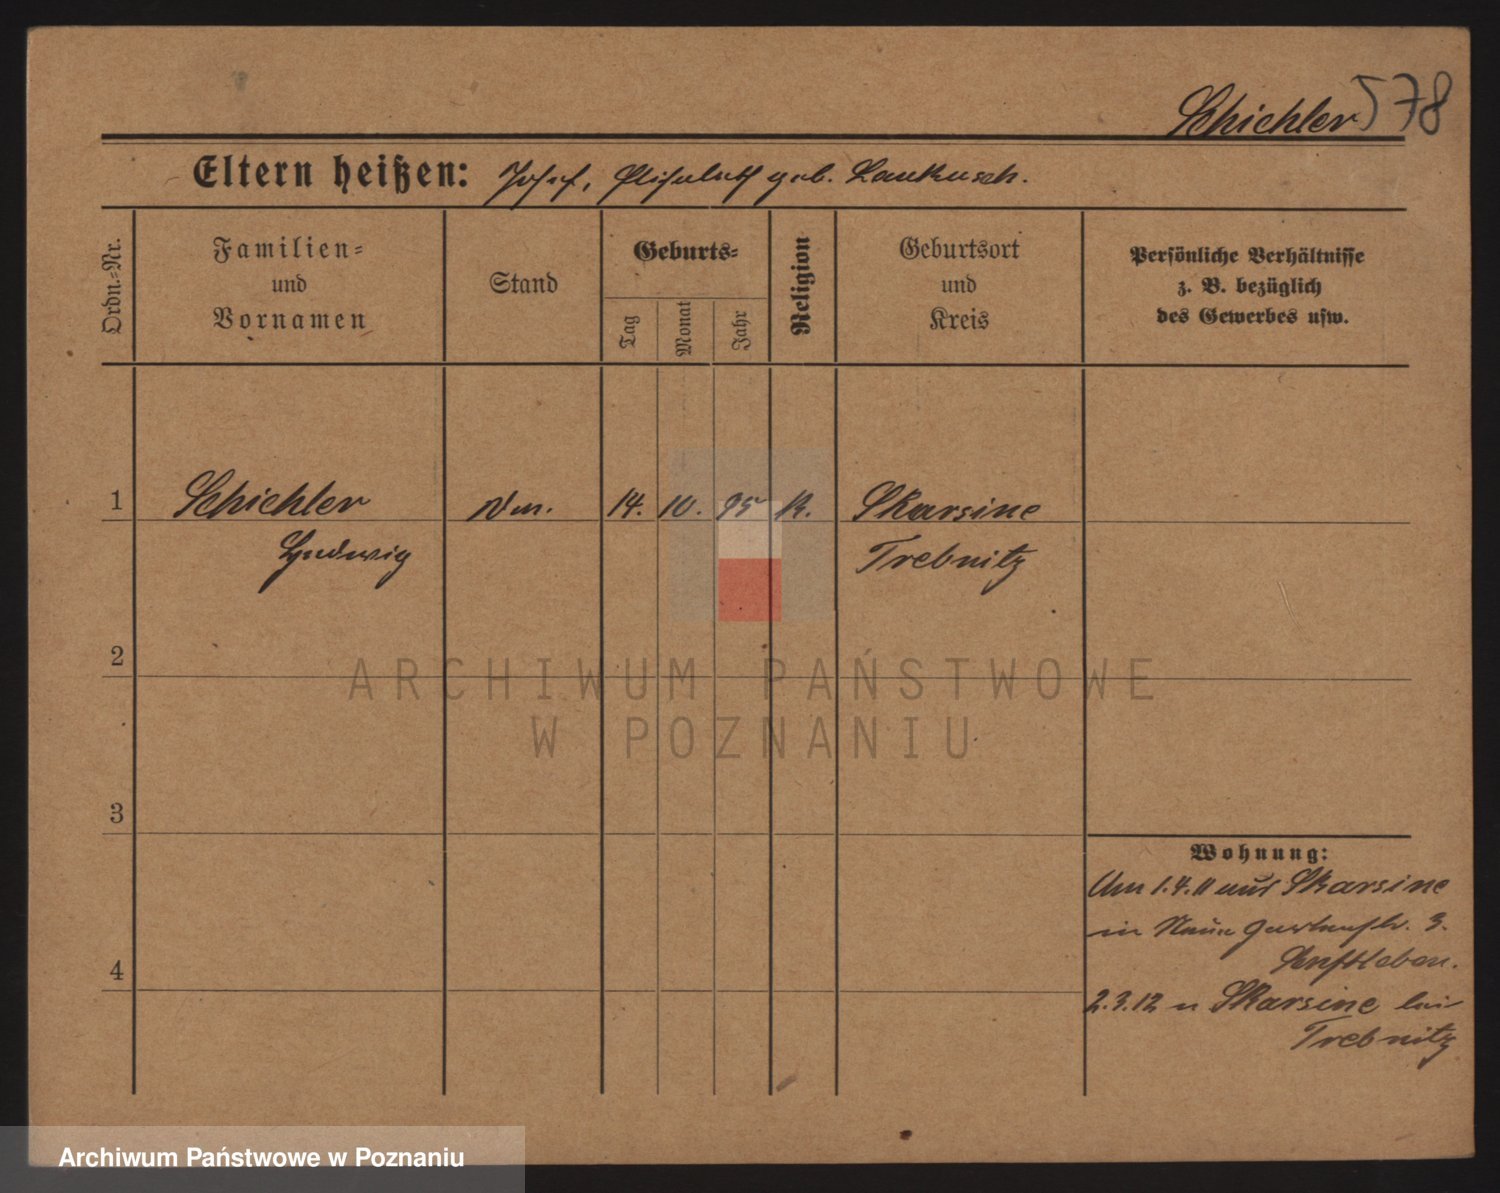 Schichler 578
Eltern heißen: Josef, Elisabeth geb. Laukusch.
Ordn.-Nr.
Familien-
und
Vornamen
Stand
Geburts-
Tag
Monat
Jahr
Religion
Geburtsort
und
Kreis
Persönliche Verhältnisse
z. B. bezüglich
des Gewerbes usw.
1 Schichler 14. 10. 95 K. Skarsine
Ludwig Trebnitz
2
3
4
Wohnung:
1.4.11 aus Skarsine
in Neue Gartenstr. 3.
Senftleben.
2.3.12 n Skarsine bei
Trebnitz
ARCHIWUM PAŃSTWOWE
W POZNANIU
Archiwum Państwowe w Poznaniu